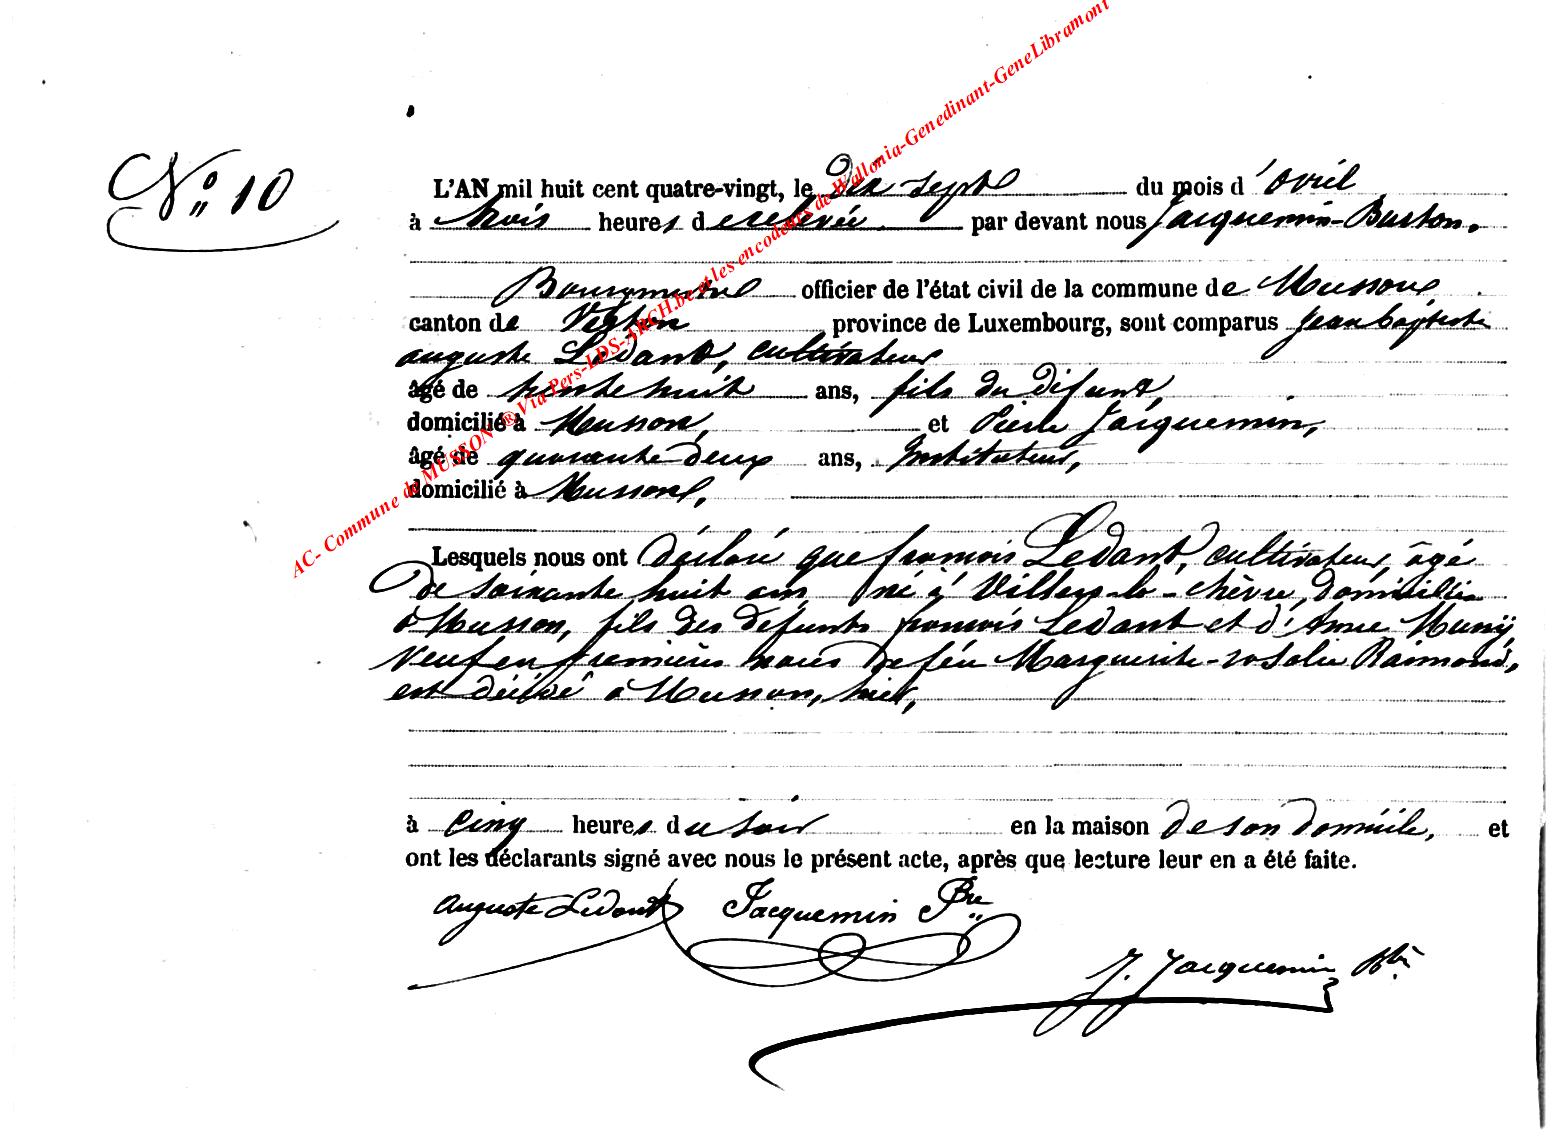 N° 10
L'AN mil huit cent quatre-vingt, le dix sept du mois d'avril
à trois heures de relevée par devant nous Jacquemin-Burton.
Bourgmestre officier de l'état civil de la commune de Musson,
canton de Virton province de Luxembourg, sont comparus Jean baptiste
auguste Ledant, cultivateur
âgé de trente huit ans, fils du défunt,
domicilié à Musson, et Pierre Jacquemin,
âgé de quarante deux ans, Instituteur,
domicilié à Musson,
Lesquels nous ont déclaré que françois Ledant, cultivateur, âgé
de soixante huit ans, né à Villers-la-chèvre, domicilié
à Musson, fils des défunts françois Ledant et d'Anne Muny,
Veuf en premières noces de feu Marguerite-rosalie Raimond,
est décédé à Musson, hier,
à cinq heures du soir en la maison de son domicile, et
ont les déclarants signé avec nous le présent acte, après que lecture leur en a été faite.
Auguste Ledant Jacquemin Pre
J. Jacquemin
AC- Commune de MUSSON ® Via Pers-LDS-ARCH.be et les encodeurs de Wallonia-Genedinant-GeneLibramont